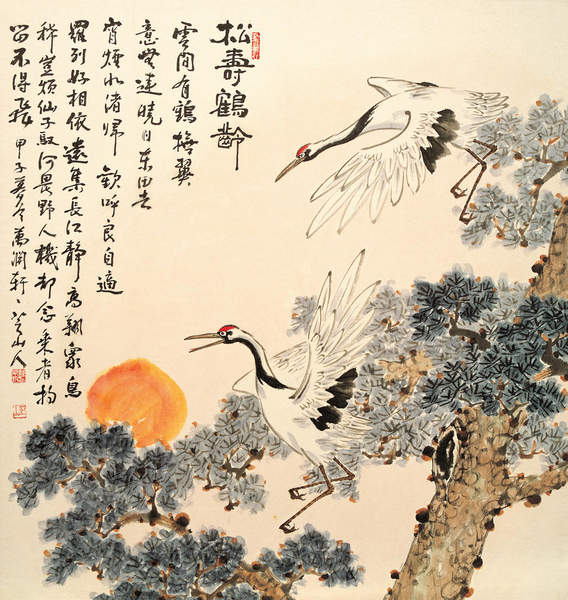 松壽鶴齡
雲間有鶴撫翼
意無違曉日東田去
宵煙北渚歸 歡呼良自適
羅列好相依遠集長江靜高翔衆鳥
稀豈煩仙子馭何畏野人機却念乘者拘
留不得飛 甲子 軒 山人